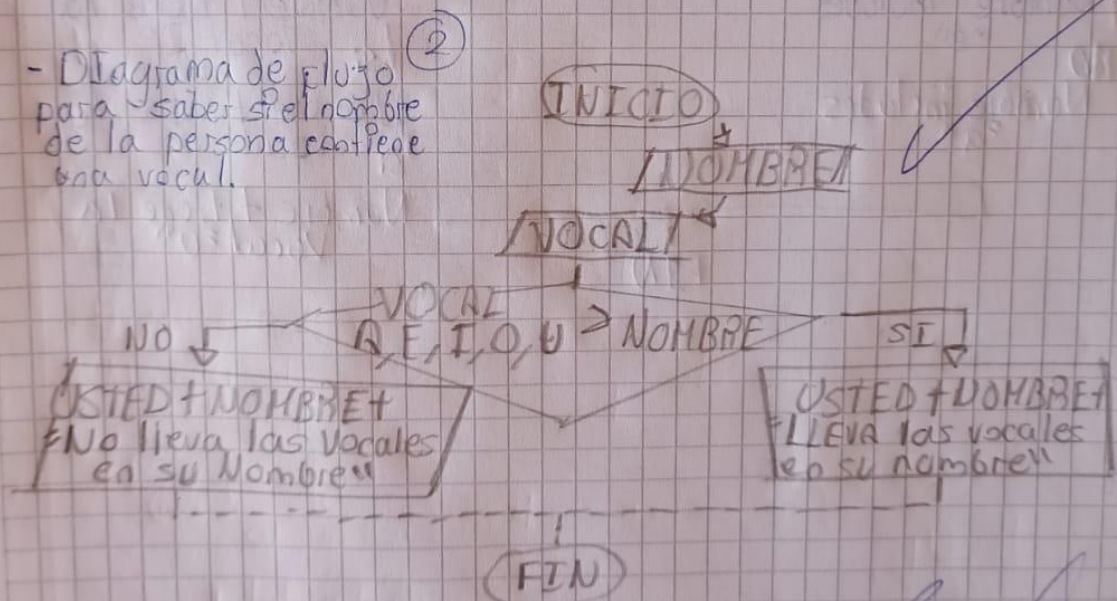 ②
- DIagrama de flujo
para saber si el nombre
de la persona contiene
una vocal.
INICIO
NOMBRE
VOCAL
VOCAL
A, E, I, O, U > NOMBRE
NO
SI
USTED + NOMBRE +
"No lleva las vocales
en su Nombre"
USTED + NOMBRE +
"LLEVA las vocales
en su nombre"
FIN